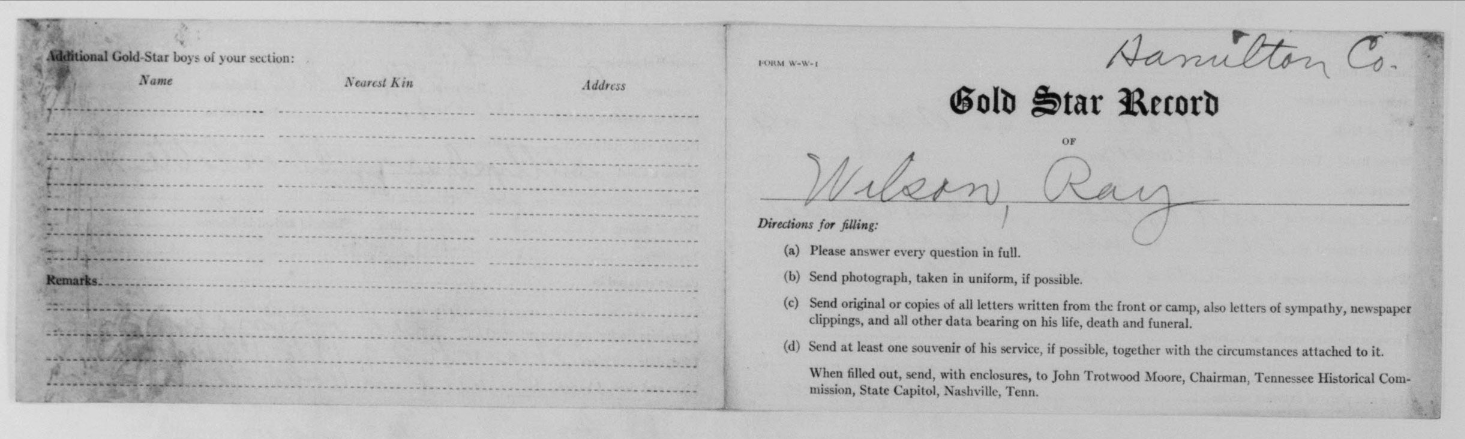 Additional Gold-Star boys of your section:
Name Nearest Kin Address
Remarks
Hamilton Co.
FORM W-W-1
Gold Star Record
OF
Wilson, Ray
Directions for filling:
(a) Please answer every question in full.
(b) Send photograph, taken in uniform, if possible.
(c) Send original or copies of all letters written from the front or camp, also letters of sympathy, newspaper
clippings, and all other data bearing on his life, death and funeral.
(d) Send at least one souvenir of his service, if possible, together with the circumstances attached to it.
When filled out, send, with enclosures, to John Trotwood Moore, Chairman, Tennessee Historical Com-
mission, State Capitol, Nashville, Tenn.